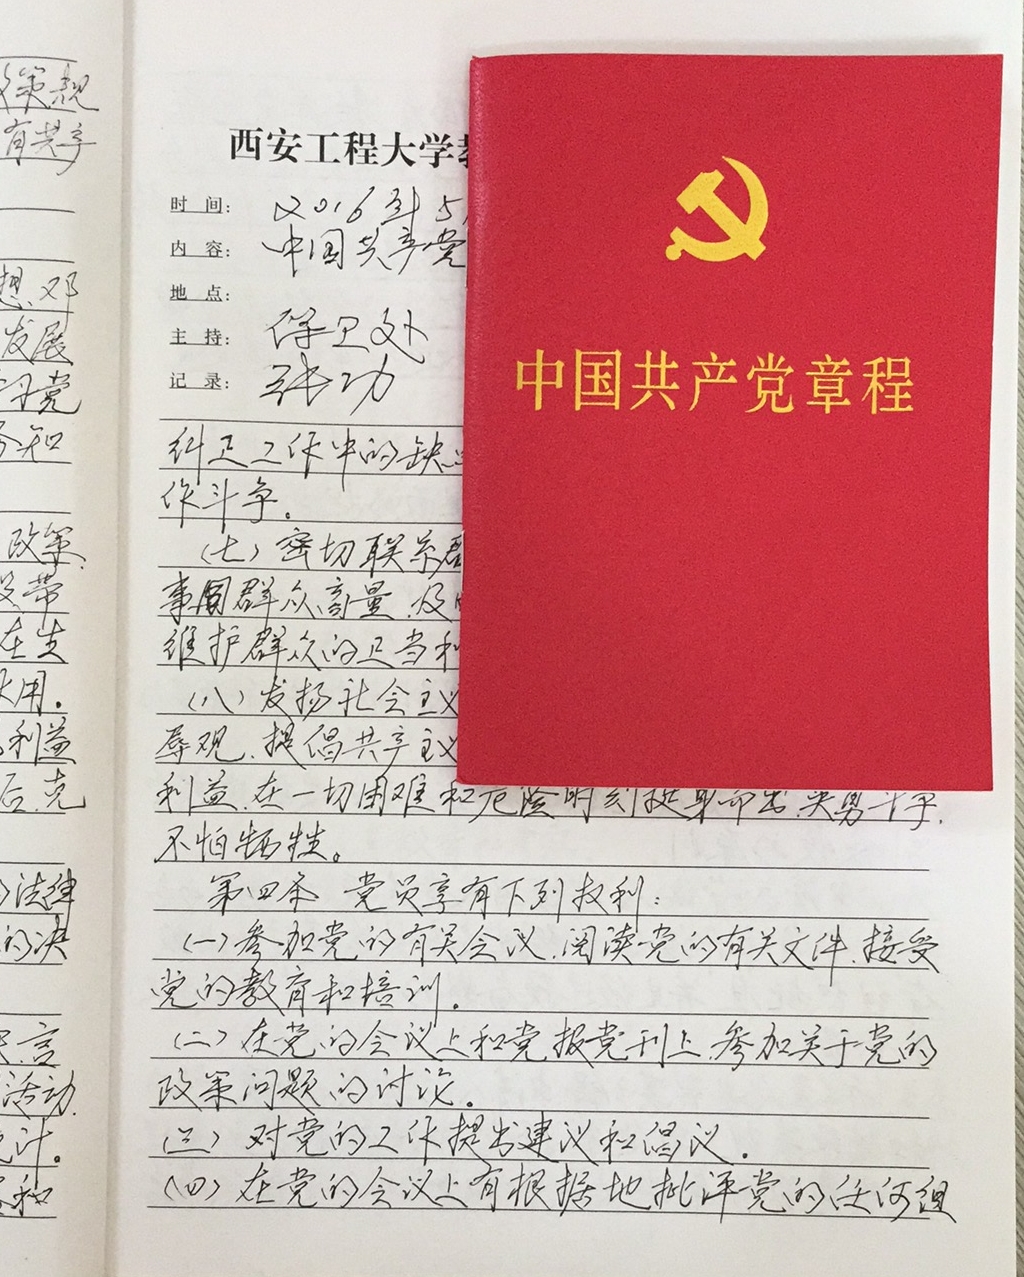 策规
有共享
想、邓
发展
习党
知
政策
带
在生
用。
利益
后,克
法律
的决
言
活动
计。
和
西安工程大学
时 间: 2016年5
内 容: 中国共产党
地 点:
主 持: 保卫处
记 录: 张功
纠正工作中的缺
作斗争。
(七)密切联系群
事同群众商量,及
维护群众的正当利
(八)发扬社会主义
辱观,提倡共产主义
利益,在一切困难和危险时刻挺身而出,英勇斗争,
不怕牺牲。
第四条 党员享有下列权利:
(一)参加党的有关会议,阅读党的有关文件,接受
党的教育和培训。
(二)在党的会议上和党报党刊上,参加关于党的
政策问题的讨论。
(三)对党的工作提出建议和倡议。
(四)在党的会议上有根据地批评党的任何组
中国共产党章程